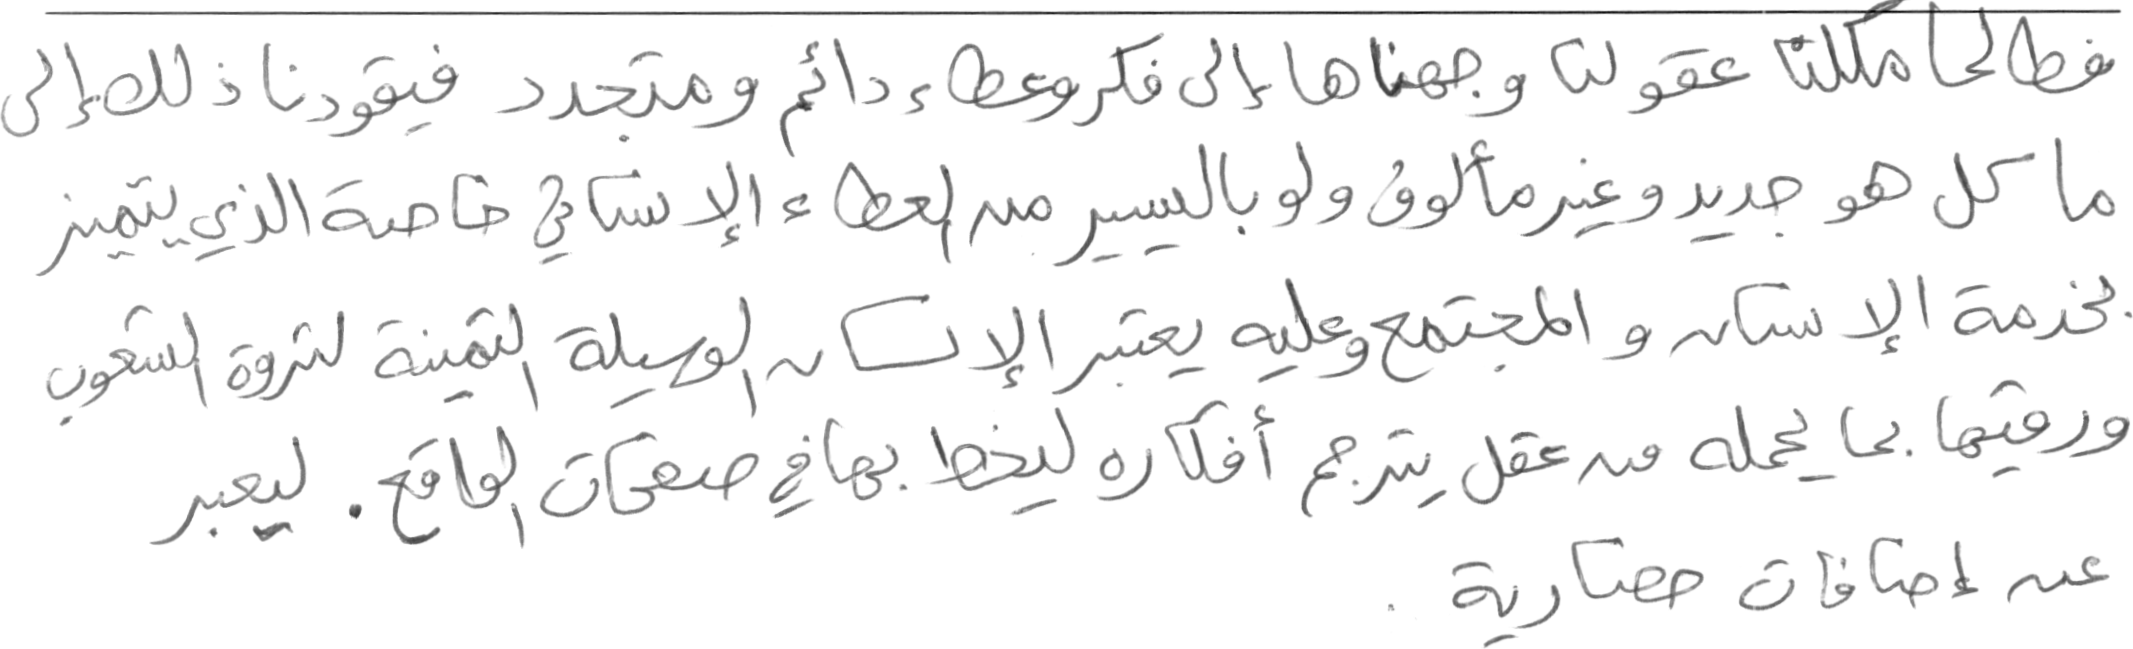 فطالما ملكنا عقولنا وجهناها إلى فكر وعطاء دائم ومتجدد فيقودنا ذلك إلى
ما كل هو جديد وغير مألوف ولو باليسير من العطاء الإنساني خاصة الذي يتميز
بخدمة الإنسان والمجتمع وعليه يعتبر الإنسان الوسيلة الثمينة لثروة الشعوب
ورقيها بما يحمله من عقل يترجم أفكاره ليخط بها في صفحات الواقع. ليعبر
عن إضافات حضارية.